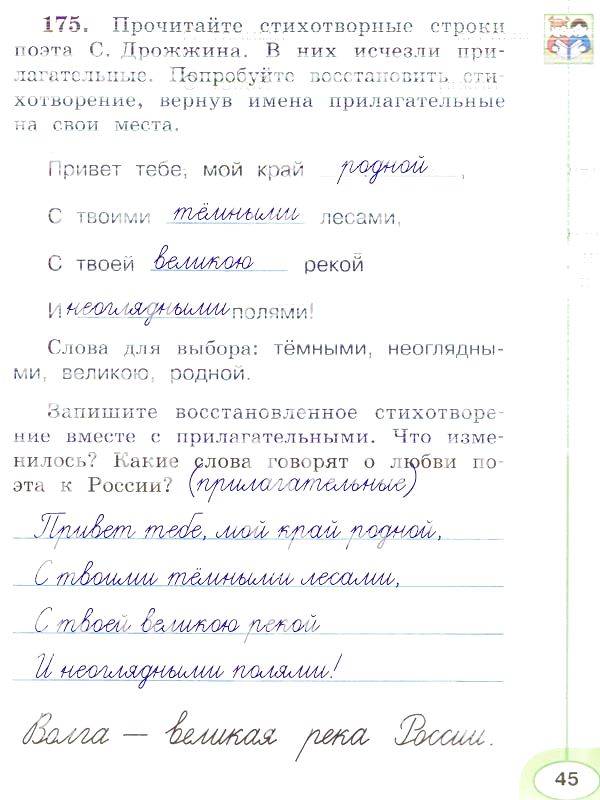 175. Прочитайте стихотворные строки
поэта С. Дрожжина. В них исчезли при-
лагательные. Попробуйте восстановить сти-
хотворение, вернув имена прилагательные
на свои места.
Привет тебе, мой край родной,
С твоими тёмными лесами,
С твоей великою рекой
И неоглядными полями!
Слова для выбора: тёмными, неоглядны-
ми, великою, родной.
Запишите восстановленное стихотворе-
ние вместе с прилагательными. Что изме-
нилось? Какие слова говорят о любви по-
эта к России? (прилагательные)
Привет тебе, мой край родной,
С твоими тёмными лесами,
С твоей великою рекой
И неоглядными полями!
Волга — великая река России.
45